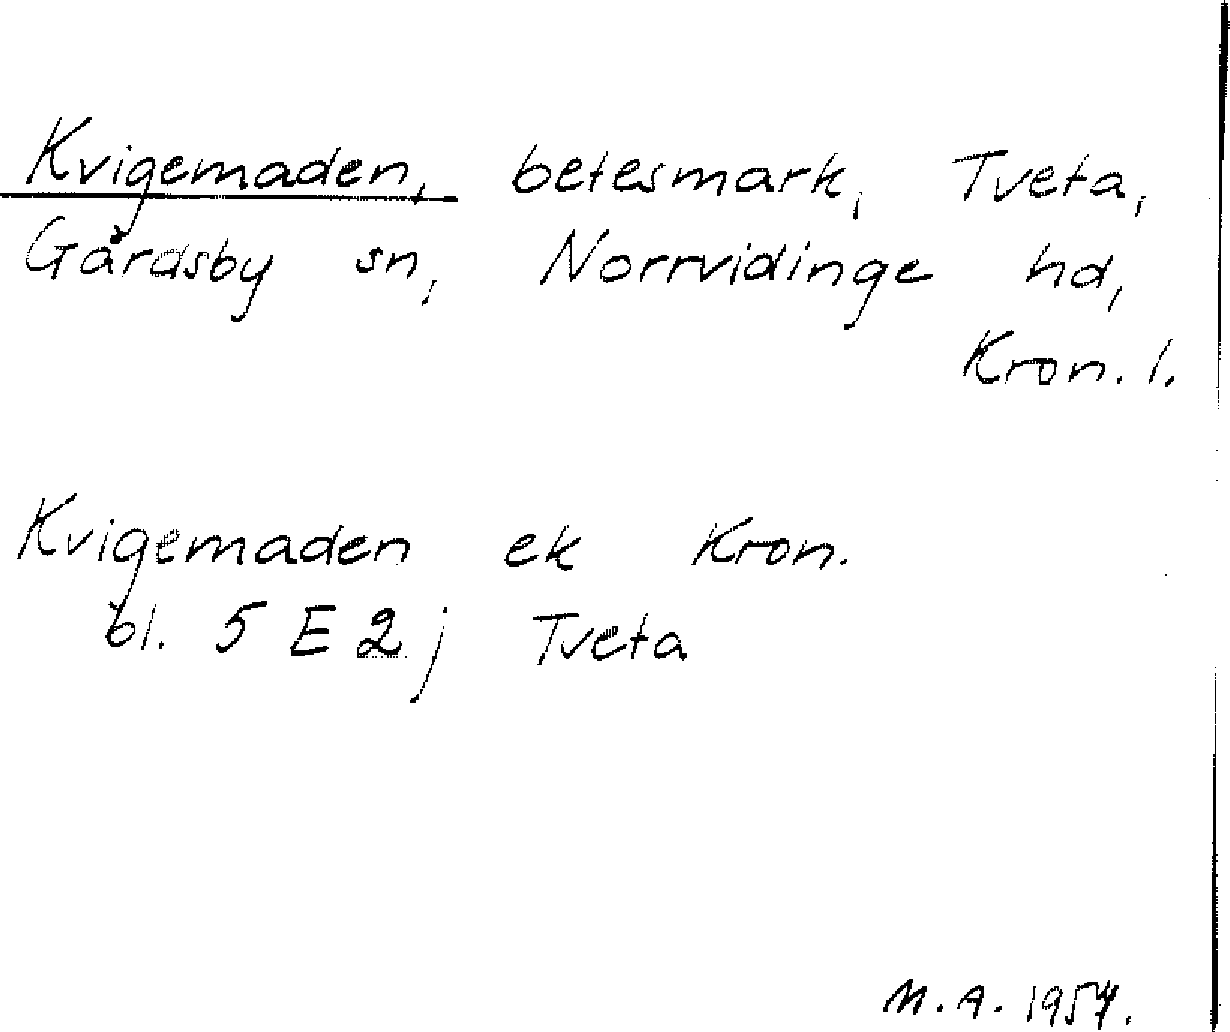 Kvigemaden, betesmark, Tveta,
Gårdsby sn, Norrvidinge hd,
Kron. l.
Kvigemaden ek Kron.
bl. 5 E 2 j Tveta
M.A. 1954.